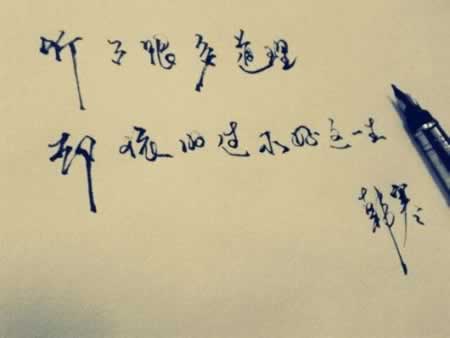 听了很多道理
却依旧过不好这一生
韩寒